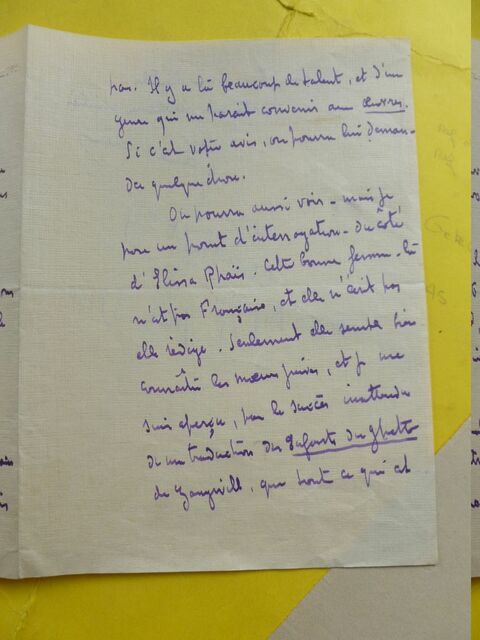 pas. Il y a là beaucoup de talent, et d'un
genre qui me paraît convenir aux œuvres.
Si c'est votre avis, on pourra lui deman-
der quelque chose.
On pourra aussi voir - mais je
pose un point d'interrogation - du côté
d'Elissa Rhaïs. Cette bonne femme-là
n'est pas Française, et elle n'écrit pas
elle rédige. Seulement elle semble bien
connaître les mœurs juives, et je me
suis aperçu, par le succès inattendu
de ma traduction des Enfants du Ghetto
de Zangwill, que tout ce qui est